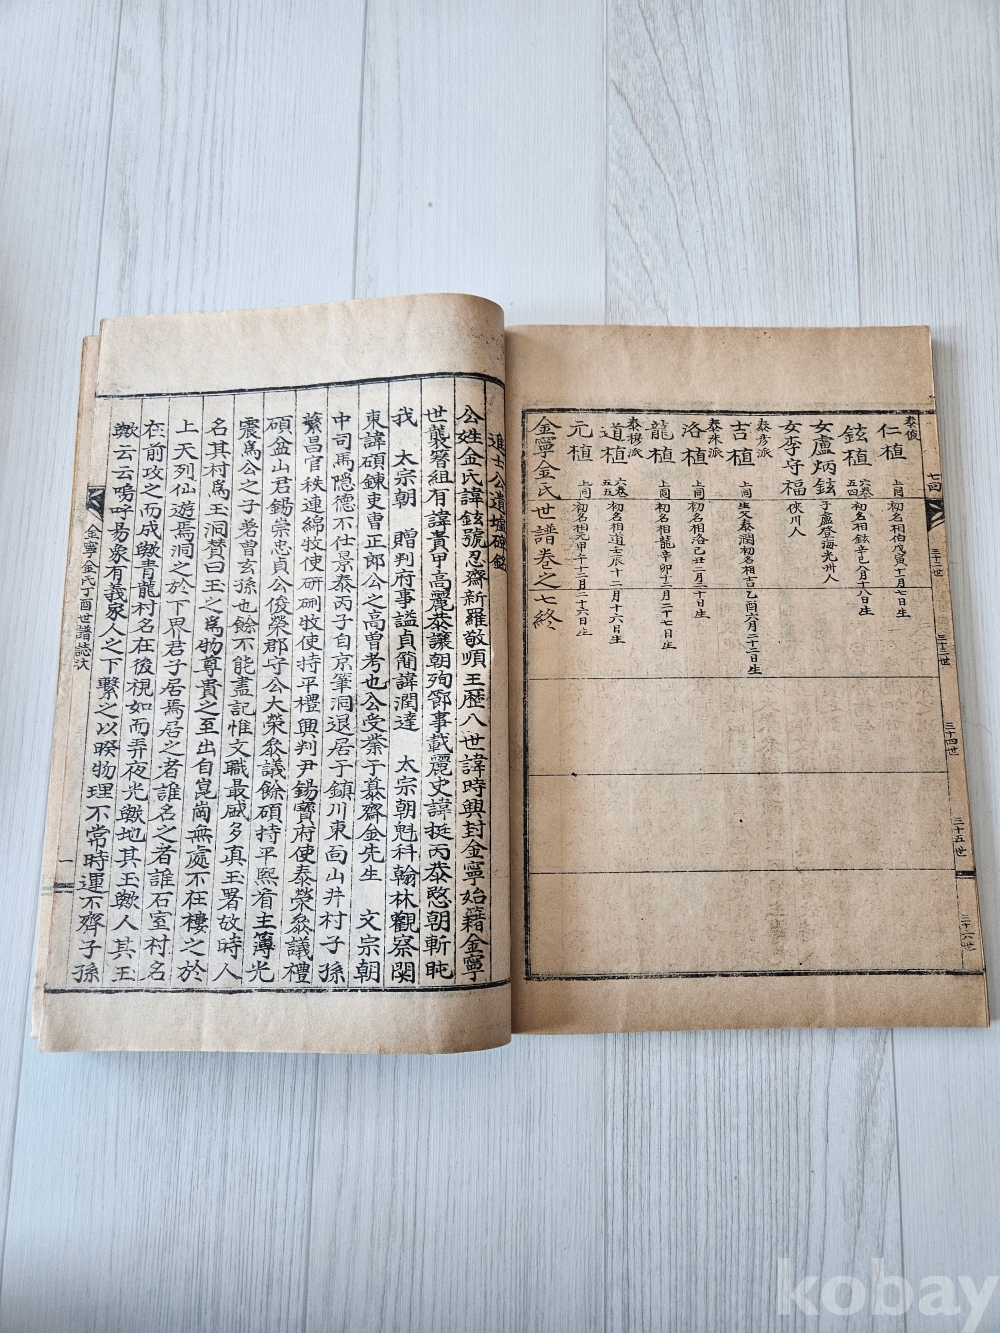 泰俊
仁植
上同
初名相伯戊寅十一月七日生
鉉植
六卷
五四
初名相鉉辛巳八月十八日生
女盧炳鉉
子盧登海光州人
女李守福
陜川人
泰彦派
吉植
上同
生父泰潤初名相吉乙酉六月二十二日生
泰洙派
洛植
上同
初名相洛己丑二月二十日生
龍植
上同
初名相龍辛卯十二月二十七日生
泰穆派
道植
六卷
五五
初名相道壬辰十二月十六日生
元植
上同
初名相元甲午十二月二十六日生
金寧金氏世譜卷之七終
七四
三十二世
三十三世
三十四世
三十五世
三十六世
進士公遺墟碑銘
公姓金氏諱鉉號忍齋新羅敬順王歷八世諱時興封金寧始籍金寧
世襲簪組有諱黃甲高麗恭讓朝殉節事載麗史諱挺丙恭愍朝斬旽
我 太宗朝 贈判府事謚貞簡諱潤達 太宗朝魁科翰林觀察関
東諱碩鍊吏曹正郎公之高曾考也公受業于慕齋金先生 文宗朝
中司馬隱德不仕景泰丙子自京筆洞退居于鎮川東面山井村子孫
繁昌官秩連綿牧使研硎牧使持平禮興判尹錫寶府使泰榮叅議禮
碩益山君錫崇忠貞公俊榮郡守公大榮叅議餘碩持平熙脩主簿光
震爲公之子若曾玄孫也餘不能盡記惟文職最盛多真玉署故時人
名其村爲玉洞贊曰玉之爲物尊貴之至出自崑崗無處不在樓之於
上天列仙遊焉洞之於下界君子居焉居之者誰名之者誰石室村名
在前攻之而成歟青龍村名在後視如而弄夜光歟地其玉歟人其玉
歟云云嗚呼易象有義家人之下繫之以睽物理不常時運不齊子孫
金寧金氏丁酉世譜誌狀
一
kobay